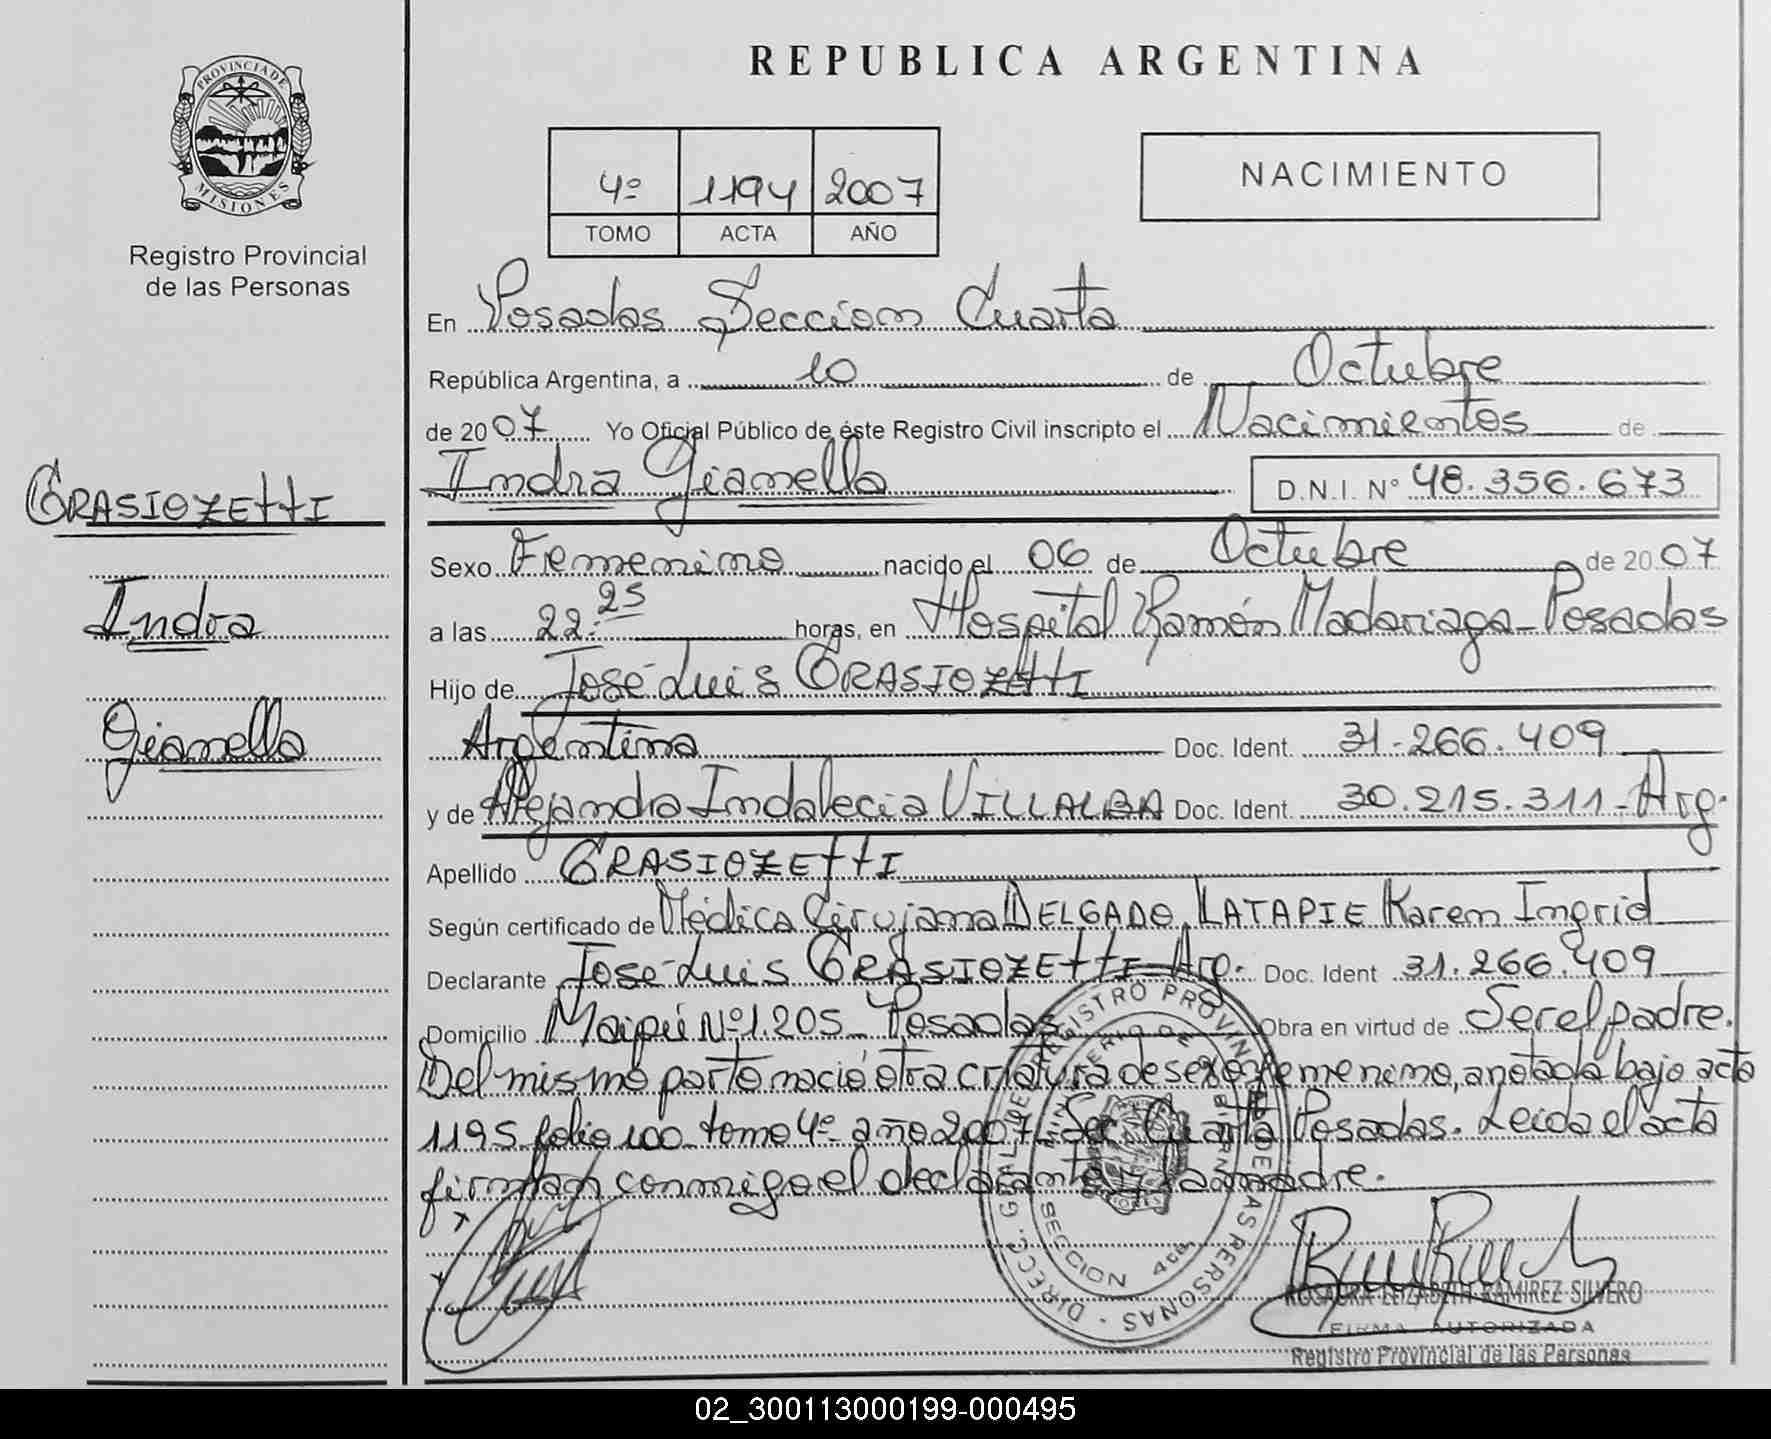 PROVINCIA DE
MISIONES
Registro Provincial
de las Personas
GRASIOZETTI
Indra
Gianella
REPUBLICA ARGENTINA
4º 1194 2007
TOMO ACTA AÑO
NACIMIENTO
En Posadas Sección Cuarta
República Argentina, a 10 de Octubre
de 2007 Yo Oficial Público de éste Registro Civil inscripto el Nacimientos de
Indra Gianella D.N.I. Nº 48.356.673
Sexo Femenino nacido el 06 de Octubre de 2007
a las 22:25 horas, en Hospital Ramón Madariaga-Posadas
Hijo de José Luis GRASIOZETTI
Argentina Doc. Ident. 31.266.409
y de Alejandra Indalecia VILLALBA Doc. Ident. 30.215.311-Arg.
Apellido GRASIOZETTI
Según certificado de Médica Cirujana DELGADO LATAPIE Karen Ingrid
Declarante José Luis GRASIOZETTI-Arg. Doc. Ident 31.266.409
Domicilio Maipú Nº1.205-Posadas Obra en virtud de Ser el padre.
Del mismo parto nació otra criatura de sexo femenino, anotada bajo acta
1195 folio 100 tomo 4º año 2007 Sec. Cuarta Posadas. Leida el acta
firman conmigo el declarante y la madre.
DIRECC. GRAL. DE REGISTRO PROVINCIAL DE LAS PERSONAS
MINISTERIO DE GOBIERNO
SECCION 4ta
ROSAURA ELIZABETH RAMIREZ SILVERO
FIRMA AUTORIZADA
Registro Provincial de las Personas
02_300113000199-000495